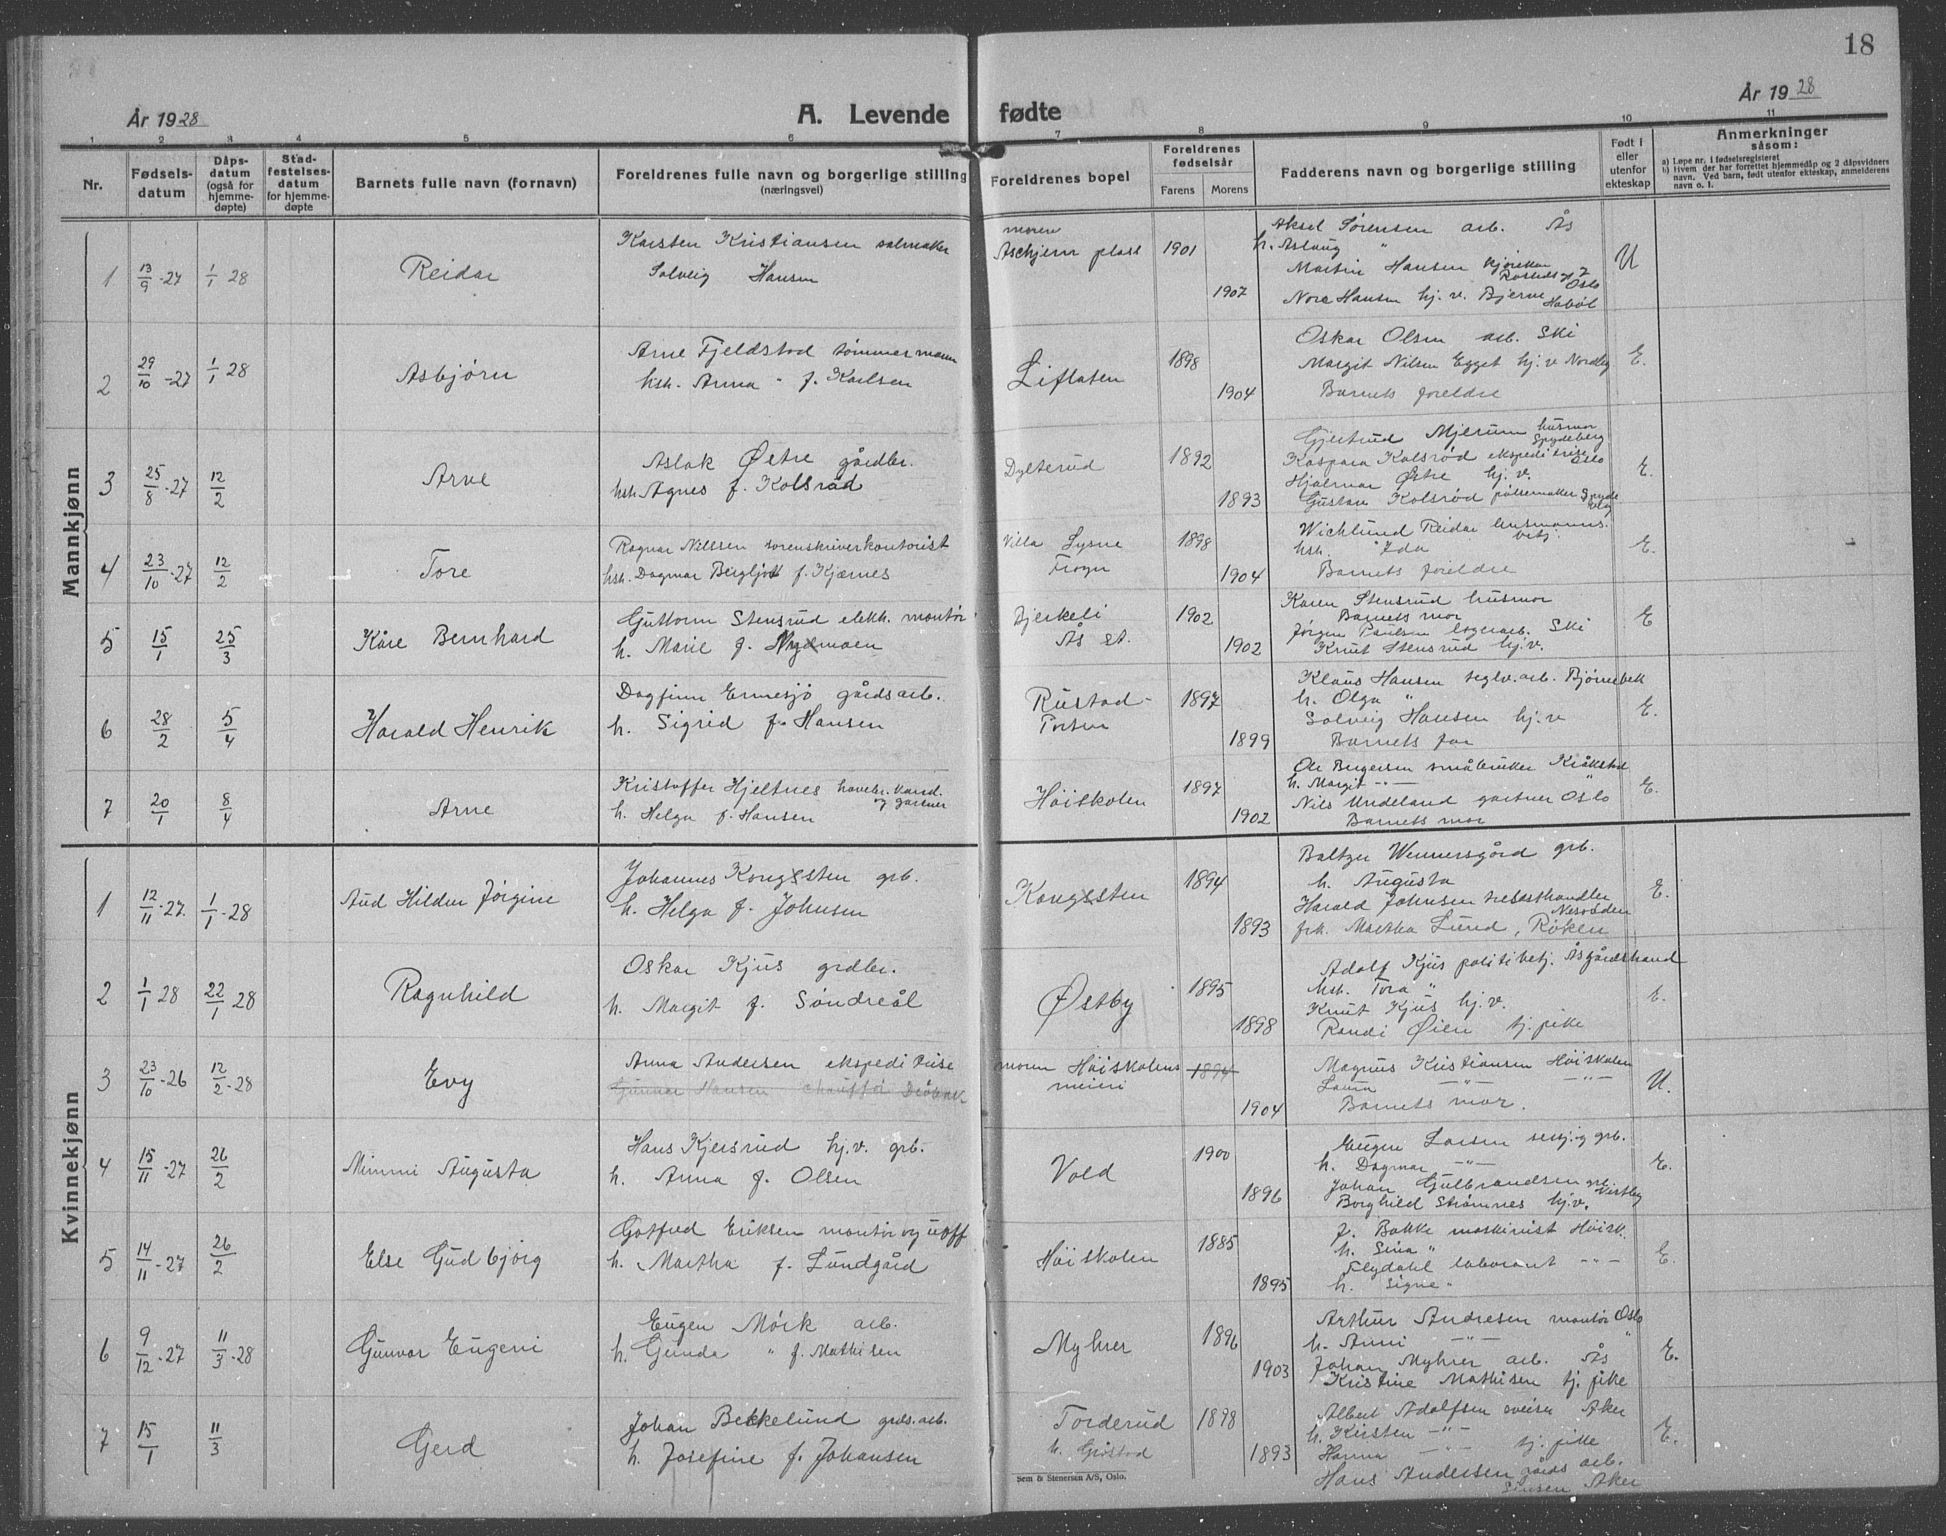 18
År 1928
A. Levende fødte
År 1928
1 2 3 4 5 6 7 8 9 10 11
Nr.
Fødsels-
datum
Dåps-
datum
(også for
hjemme-
døpte)
Stad-
festelses-
datum
for hjemme-
døpte
Barnets fulle navn (fornavn)
Foreldrenes fulle navn og borgerlige stilling
(næringsvei)
Foreldrenes bopel
Foreldrenes
fødselsår
Farens Morens
Fadderens navn og borgerlige stilling
Født i
eller
utenfor
ekteskap
Anmerkninger
såsom:
a) Løpe nr. i fødselsregisteret
b) Hvem der har forrettet hjemmedåp og 2 dåpsvidners
navn. Ved barn, født utenfor ekteskap, anmelderens
navn o. l.
Mannkjønn
1 13/9-27 1/1 28 Reidar
Karsten Kristiansen salmaker
Solveig Hansen
moren
Aschjem plass 1901
1907
Aksel Sørensen arb. Ås
h. Aslaug "
Martin Hansen
Oslo
Nora Hansen hj. v. Bjerve Hobøl
U
2 29/10-27 1/1 28 Asbjørn
Arne Fjeldstad tømmermann
hsh. Anna " f. Karlsen
Liflaten 1898
1904
Oskar Olsen arb. Ski
Margit Nilsen Egget hj. v. Nordby
Barnets foreldre
E.
3 25/8-27 12/2 Arve
Aslak Østre gårdbr.
hsh. Agnes f. Kolsrød
Dylterud 1892
1893
Gjertrud Mjerum husmor
Spydeberg
Kaspara Kolsrød ekspeditrise Oslo
Hjalmar Østre hj. v.
Gustav Kolsrød pølsemaker Spydeberg
E.
4 23/10-27 12/2 Tore
Ragnar Nilssen sorenskriverkontorist
hsh. Dagmar Bergljot f. Kjærnes
Villa Lysne
Frogn 1898
1904
Wichlund Reidar
hsh. Ida
Barnets foreldre
E.
5 15/1 25/3 Kåre Bernhard
Guttorm Stensrud elekk. montør
h. Marie f. Nygmoen
Bjerkeli
Ås st. 1902
1902
Karen Stensrud husmor
Barnets mor
Jørgen Paulsen lagerarb. Ski
Knut Stensrud hj. v.
E
6 28/2 5/4 Harald Henrik
Dagfinn Ermesjø gårdsarb.
h. Sigrid f. Hansen
Rustad-
Porten 1897
1899
Klaus Hansen teglv. arb. Bjørnebek
h. Olga "
Solveig Hansen hj. v
Barnets far
E.
7 20/1 8/4 Arne
Kristoffer Hjeltnes havebr. kand.
og gartner
h. Helga f. Hansen
Høiskolen 1897
1902
Ole Birgersen småbruker Kråkstad
h. Margit -"-
Nils Undeland gartner Oslo
Barnets mor
E.
Kvinnekjønn
1 12/11-27. 1/1-28 Aud Hildur Jørgine
Johannes Kongssten grb.
h. Helga f. Johnsen
Kongssten 1894
1893
Baltzer Wennersgård grb.
h. Augusta
Harald Johnsen trelasthandler
Nesodden
frk. Martha Lund, Røken
E.
2 1/1 28 22/1 28 Ragnhild
Oskar Kjus grdbr.
h. Margit f. Søndreål
Østby 1895
1898
Adolf Kjus politibetj. Åsgårdstrand
hsh. Tora "
Knut Kjus hj. v.
Randi Øien tj. pike
E.
3 23/10-26 12/2-28 Evy
Anna Andersen ekspeditrise
Gunnar Hansen chauffør Drøbak
moren Høiskolens
meieri 1894
1904
Magnus Kristiansen Høiskolen
Laura -"- -"-
Barnets mor.
U.
4 15/11-27 26/2 Mimmi Augusta
Hans Kjersrud hj. v. grb.
h. Anna f. Olsen
Vold 1900
1896
Eugen Larsen grb.
h. Dagmar -"-
Johan Gulbrandsen Vestby
Borghild Strømnes hj. v.
E.
5 14/11-27 26/2 Else Gudbjørg
Gotfred Eriksen montør og opff
h. Martha f. Lundgård
Høiskolen 1885
1895
J. Bakke maskinist Høisk.
h. Sina "
Flydahl laborant -"-
h. Signe "
E.
6 9/12-27 11/3-28 Gunvor Eugeni
Eugen Mørk arb.
h. Gunda " f. Mathisen
Myhrer 1896
1903
Arthur Andresen montør Oslo
h. Anni -"- "
Johan Myhrer arb. Ås
Kristine Mathisen tj. pike
E.
7 15/1 11/3 Gerd
Johan Bekkelund grds. arb.
h. Josefine f. Johansen
Torderud
h. Grøstad 1898
1893
Albert Adolfsen sveiser Aker
h. Kirsten -"-
Hanna -"- tj. pike
Hans Andersen gårds arb.
Sinsen Aker
E.
Sem & Stenersen A/S, Oslo.